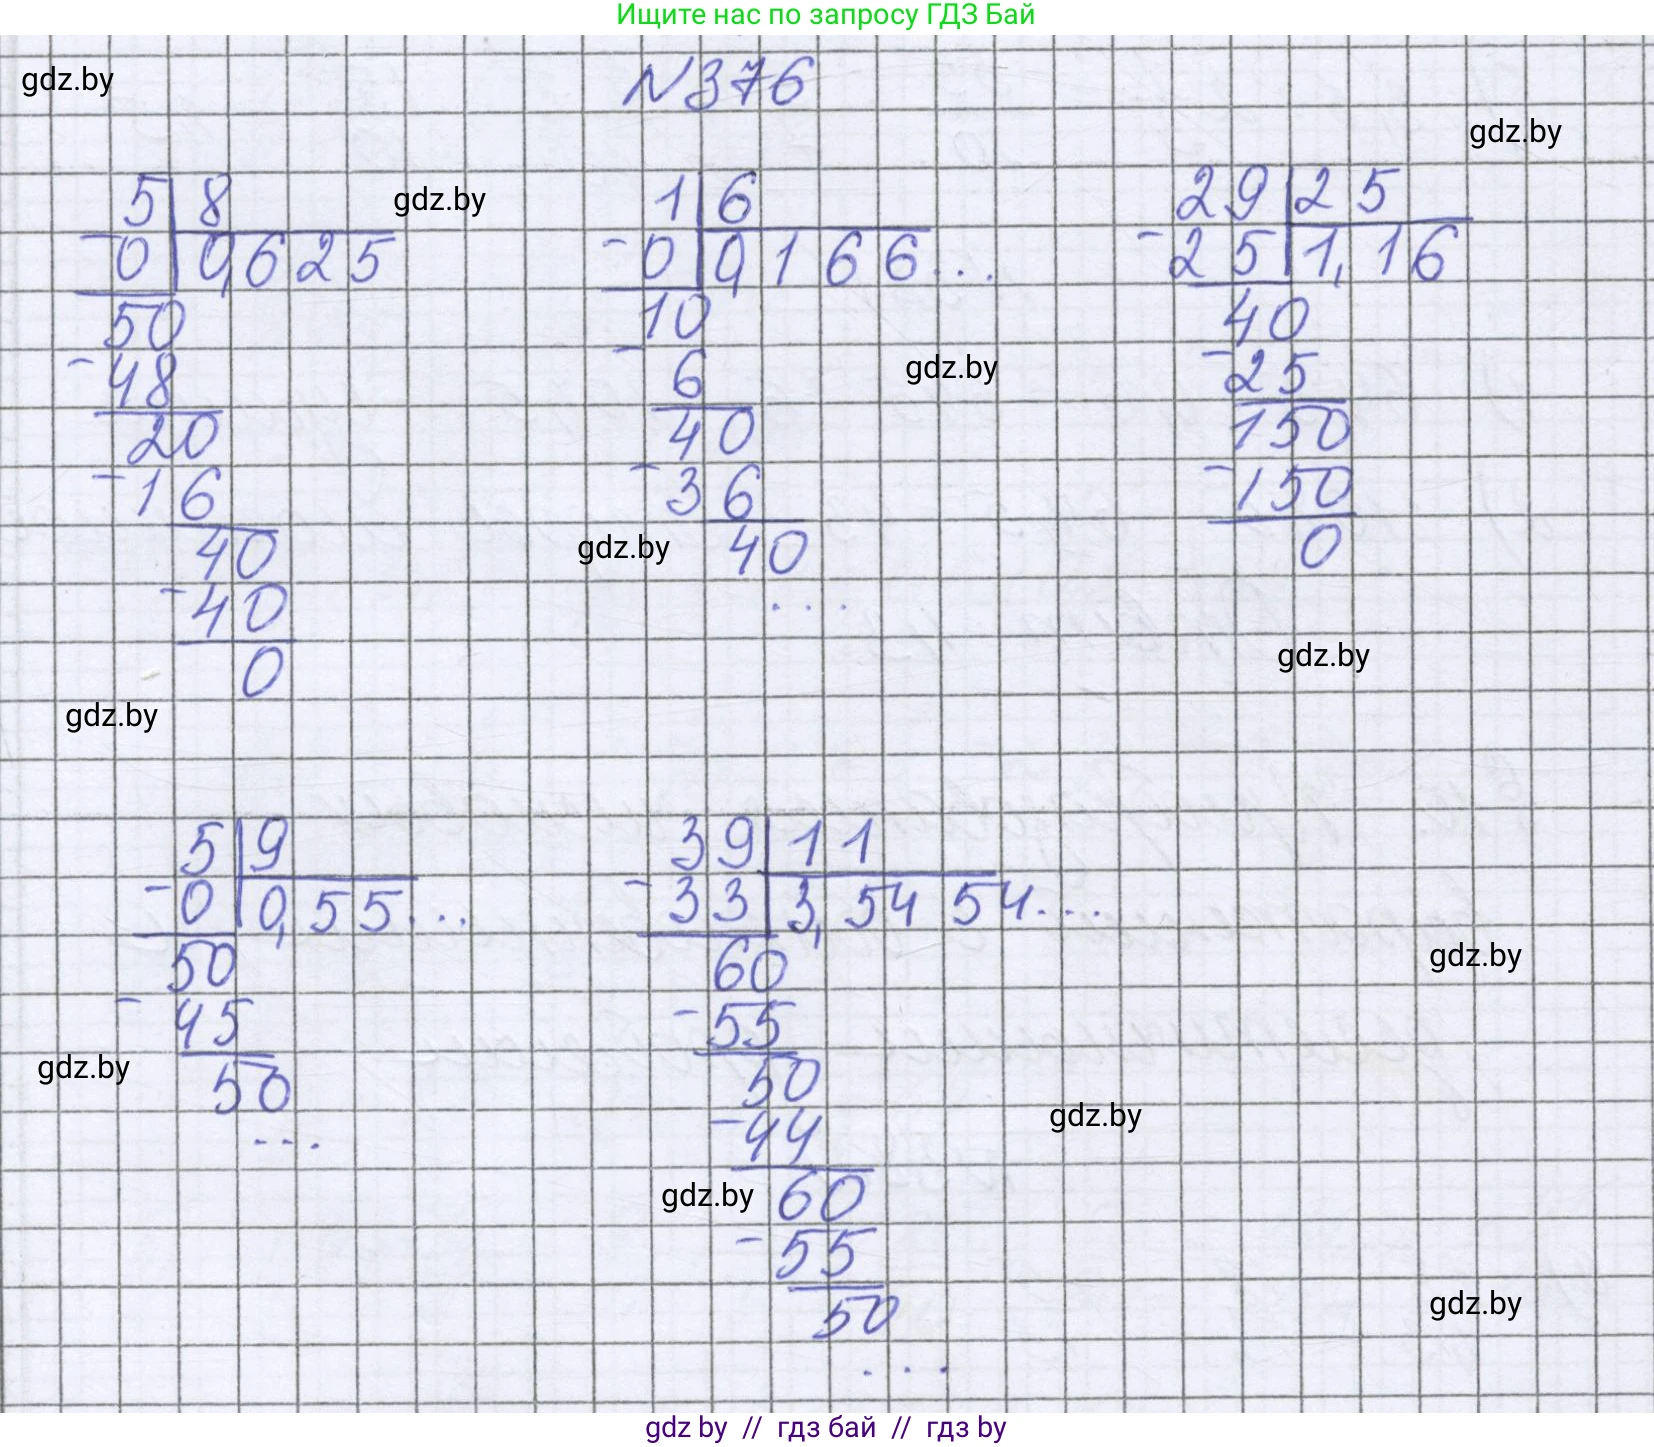 Ищите нас по запросу ГДЗ Бай
gdz.by
N376
gdz.by
5 8
-0 0,625
50
-48
20
-16
40
-40
0
gdz.by
1 6
-0 0,166...
10
-6
40
-36
40
...
gdz.by
gdz.by
29 25
-25 1,16
40
-25
150
-150
0
gdz.by
gdz.by
5 9
-0 0,55...
50
-45
50
...
gdz.by
39 11
-33 3,5454...
60
-55
50
-44
60
-55
50
...
gdz.by
gdz.by
gdz.by
gdz.by
gdz by // гдз бай // гдз by